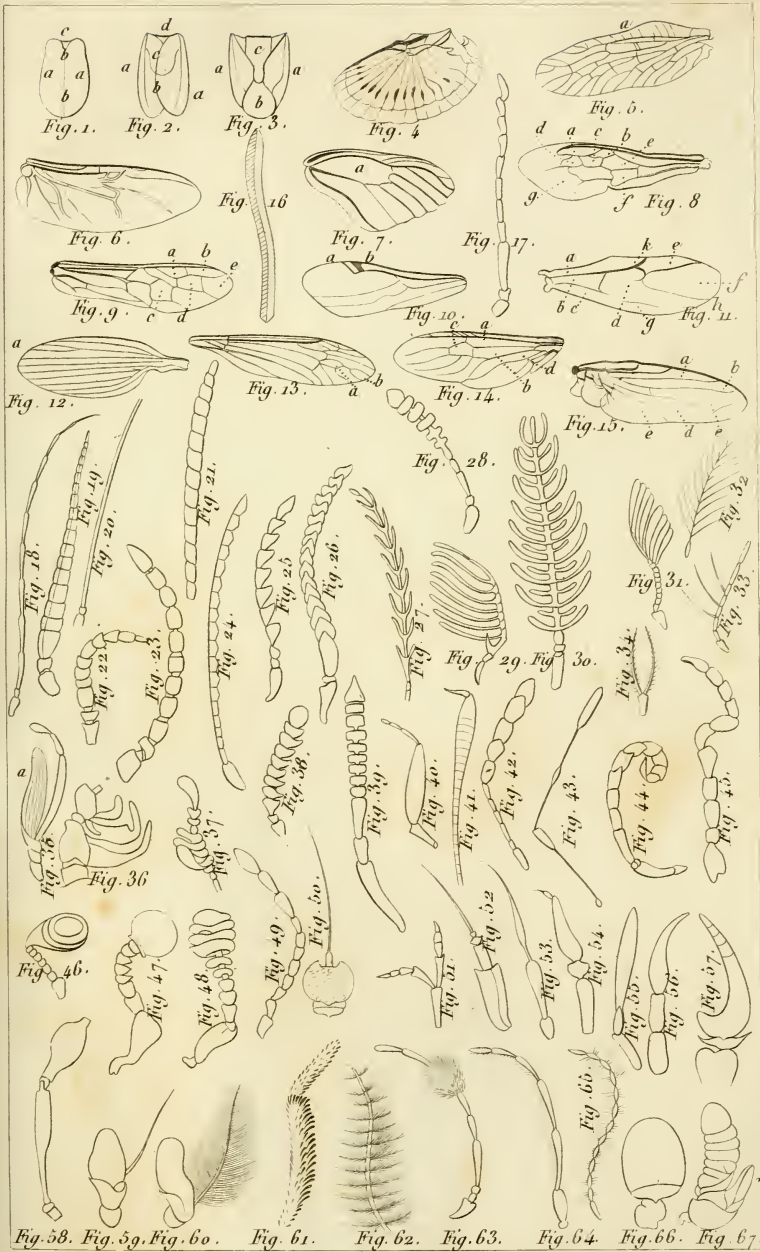 c
d
a b a
a c
b a
b
a c a
b
a
Fig. 1.
Fig. 2.
Fig. 3.
Fig. 4
Fig. 5.
d a c b e
g f Fig. 8
Fig. 6.
Fig. 16
a
Fig. 7.
Fig. 17.
a b e
c d
Fig. 9.
a b
Fig. 10.
a k e
f
b c d g h
Fig. 11.
a
Fig. 12.
Fig. 13.
a b
c a
d
b
Fig. 14.
a b
Fig. 15.
e d e
Fig. 18.
Fig. 19.
Fig. 20.
Fig. 21.
Fig. 28.
Fig. 22.
Fig. 23.
Fig. 24.
Fig. 25
Fig. 26.
Fig. 27.
Fig. 29.
Fig. 30.
Fig. 31.
Fig. 32
Fig. 33.
Fig. 34.
a
Fig. 36
Fig. 37.
Fig. 38.
Fig. 39.
Fig. 40.
Fig. 41.
Fig. 42.
Fig. 43.
Fig. 44.
Fig. 45.
Fig. 46.
Fig. 47.
Fig. 48.
Fig. 49.
Fig. 50.
Fig. 51.
Fig. 52
Fig. 53.
Fig. 54.
Fig. 55.
Fig. 56.
Fig. 57.
Fig. 58.
Fig. 59.
Fig. 60.
Fig. 61.
Fig. 62.
Fig. 63.
Fig. 64.
Fig. 66.
Fig. 67